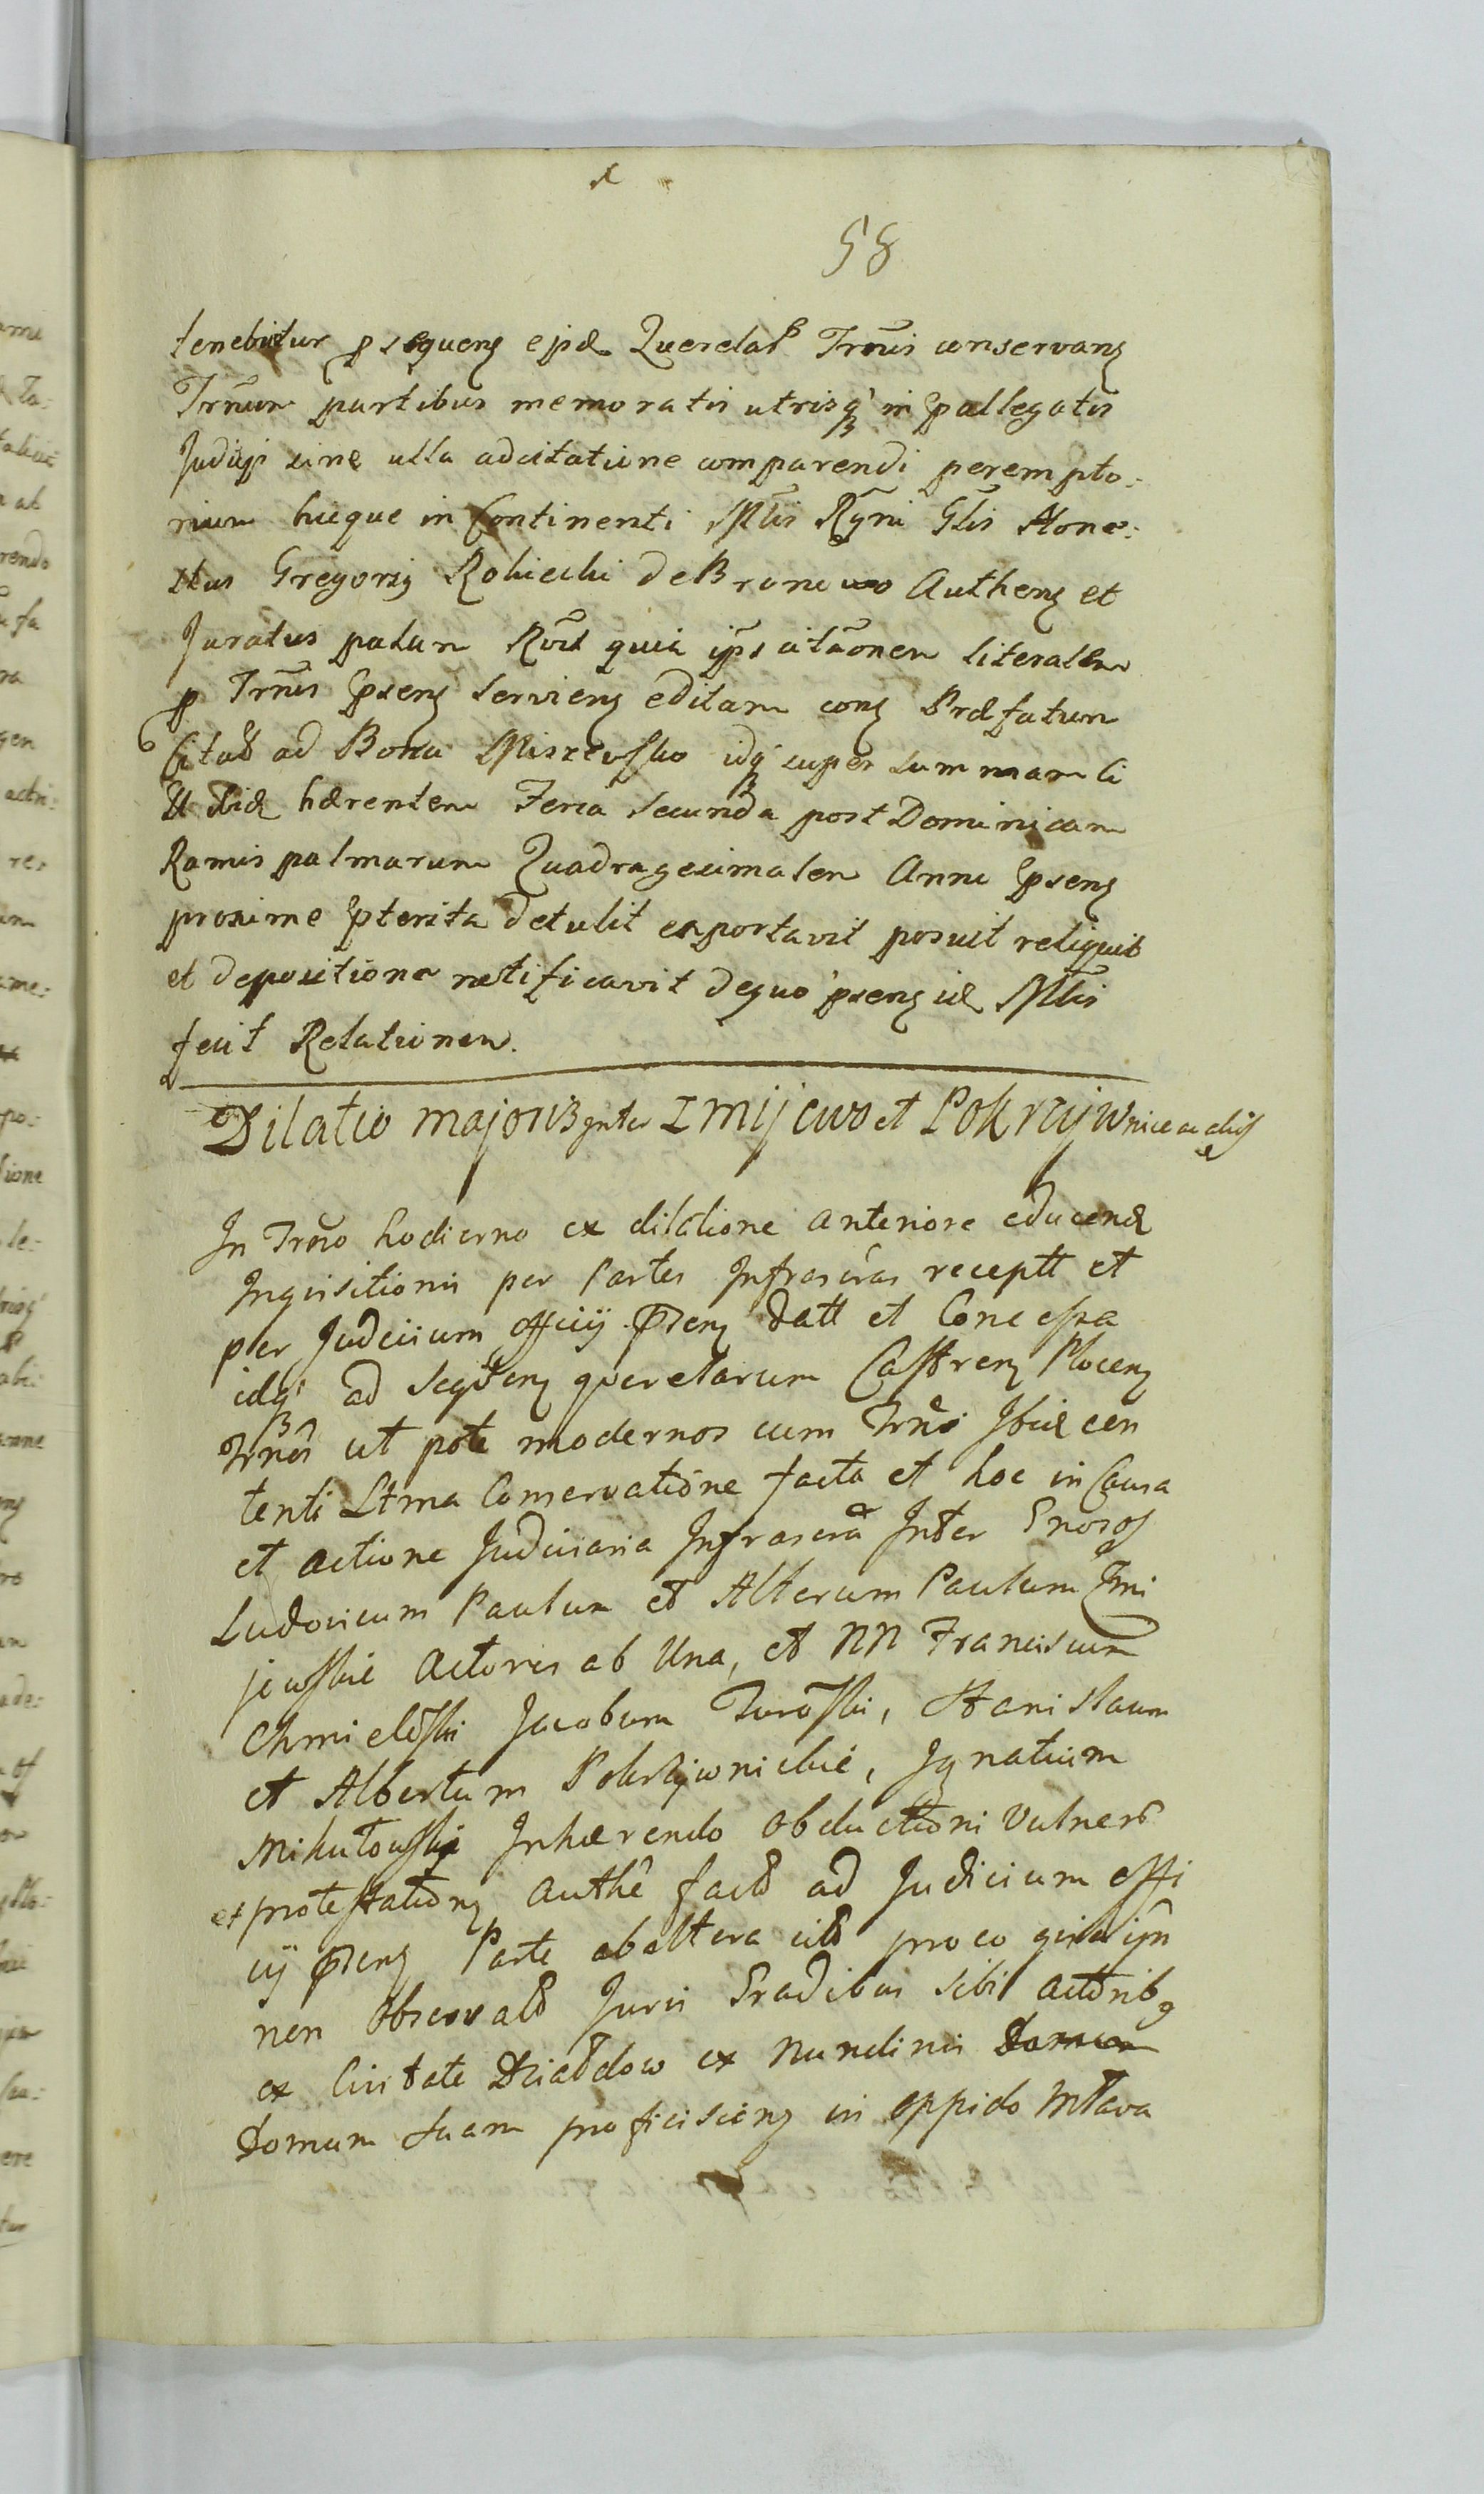 58
tenebitur p sequens ejd Querelaȓ Trnis conservans
Trnum partibus memoratis utrisq in pallegatis
Judijs sine ulla adcitatione comparendi perempto:
rium hicque in Continenti Mtis Rgni Glis Hone:
stus Gregorig Rokicchi de Bronowo Authens et
Juratus palam Rvit quia ips citaonem literalem
p Trnis psens serviens editam cons Præfatum
Citat ad Bona Miszewsko idq super summam ci
hærentem Feria Secunda post Dominicam
Ramis palmarum Quadragesimalem Anni psens
proxime pterita detulit exportavit posuit reliquit
et depositione notificavit de quo psens id Mtis
fecit Relationem.
Dilatio majoris inter Zmijewo et Pokrzywnice ac alios
In Trno hodierno ex dilatione anteriore educend
Inquisitionis per Partes Infrascras receptt et
per Judicium officij psens datt et Concessa
idq ad sequens querelarum Castrens Plocens
Trnos ut pote modernos cum Trni Ibid con
tenti Ltma Conservatione facta et hoc in Causa
et actione Judiciaria Infrascra Inter Gnosos
Ludovicum Paulum et Alterum Paulum Zmi
jewskie Actores ab Una, et NN Franciscum
Chmieloski Jacobum Turoski, Stanislaum
et Albertum Pokrzywnickie, Ignatium
Mikutowski Inhærendo Obductioni Vulnerȓ
et protestations Authe fact ad Judicium offi
cij psens Parte ab altera citt pro eo quia ipsi
non Observatt Juris Gradibus sibi actorib9
ex Civitate Dziadow ex Nundinis
Domum suam proficiscens in oppido Mlava